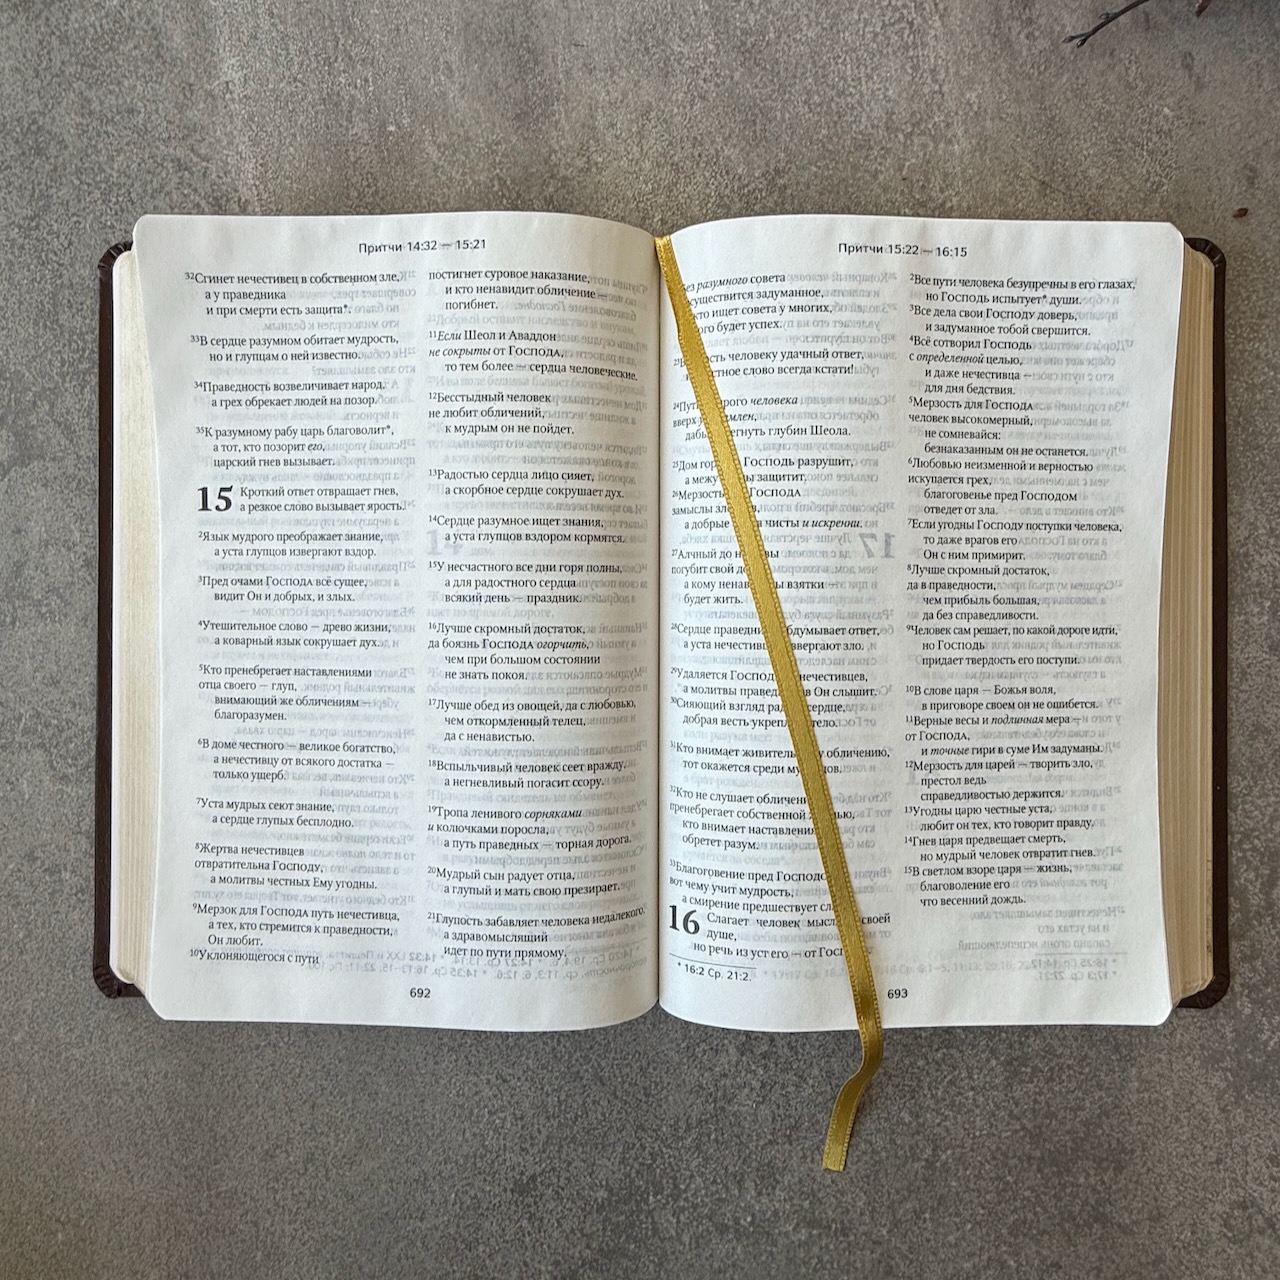 Притчи 14:32 — 15:21
32Сгинет нечестивец в собственном зле,
а у праведника
и при смерти есть защита*.
33В сердце разумном обитает мудрость,
но и глупцам о ней известно.
34Праведность возвеличивает народ,
а грех обрекает людей на позор.
35К разумному рабу царь благоволит*,
а тот, кто позорит его,
царский гнев вызывает.
15 Кроткий ответ отвращает гнев,
а резкое слово вызывает ярость.
2Язык мудрого преображает знание,
а уста глупцов извергают вздор.
3Пред очами Господа всё сущее,
видит Он и добрых, и злых.
4Утешительное слово — древо жизни,
а коварный язык сокрушает дух.
5Кто пренебрегает наставлениями
отца своего — глуп,
внимающий же обличениям —
благоразумен.
6В доме честного — великое богатство,
а нечестивцу от всякого достатка —
только ущерб.
7Уста мудрых сеют знание,
а сердце глупых бесплодно.
8Жертва нечестивцев
отвратительна Господу,
а молитвы честных Ему угодны.
9Мерзок для Господа путь нечестивца,
а тех, кто стремится к праведности,
Он любит.
10Уклоняющегося с пути
постигнет суровое наказание,
и кто ненавидит обличение —
погибнет.
11Если Шеол и Аваддон
не сокрыты от Господа,
то тем более — сердца человеческие.
12Бесстыдный человек
не любит обличений,
к мудрым он не пойдет.
13Радостью сердца лицо сияет,
а скорбное сердце сокрушает дух.
14Сердце разумное ищет знания,
а уста глупцов вздором кормятся.
15У несчастного все дни горя полны,
а для радостного сердца
всякий день — праздник.
16Лучше скромный достаток,
да боязнь Господа огорчить,
чем при большом состоянии
не знать покоя.
17Лучше обед из овощей, да с любовью,
чем откормленный телец,
да с ненавистью.
18Вспыльчивый человек сеет вражду,
а негневливый погасит ссору.
19Тропа ленивого сорняками
и колючками поросла,
а путь праведных — торная дорога.
20Мудрый сын радует отца,
а глупый и мать свою презирает.
21Глупость забавляет человека недалекого,
а здравомыслящий
идет по пути прямому.
692
Притчи 15:22 — 16:15
разумного совета
задуманное,
кто ищет совета у многих,
будет успех.
человеку удачный ответ,
слово всегда кстати!
24Путь человека
вверх
глубин Шеола.
25Дом Господь разрушит,
а межу защитит.
26Мерзость Господа
замыслы
а добрые чисты и искренни.
27Алчный до
погубит свой
а кому взятки —
будет жить.
28Сердце обдумывает ответ,
а уста извергают зло.
29Удаляется нечестивцев,
а молитвы Он слышит.
30Сияющий взгляд сердце,
добрая весть тело.
31Кто внимает обличению,
тот окажется среди
32Кто не слушает
пренебрегает собственной
кто внимает
обретет разум.
33Благоговение пред
вот чему учит мудрость,
а смирение предшествует
16 Слагает человек своей
душе,
но речь из уст его — от
* 16:2 Ср. 21:2.
2Все пути человека безупречны в его глазах,
но Господь испытует* души.
3Все дела свои Господу доверь,
и задуманное тобой свершится.
4Всё сотворил Господь
с определенной целью,
и даже нечестивца —
для дня бедствия.
5Мерзость для Господа
человек высокомерный,
не сомневайся:
безнаказанным он не останется.
6Любовью неизменной и верностью
искупается грех,
благоговенье пред Господом
отведет от зла.
7Если угодны Господу поступки человека,
то даже врагов его
Он с ним примирит.
8Лучше скромный достаток,
да в праведности,
чем прибыль большая,
да без справедливости.
9Человек сам решает, по какой дороге идти,
но Господь
придает твердость его поступи.
10В слове царя — Божья воля,
в приговоре своем он не ошибется.
11Верные весы и подлинная мера —
от Господа,
и точные гири в суме Им задуманы.
12Мерзость для царей — творить зло,
престол ведь
справедливостью держится.
13Угодны царю честные уста,
любит он тех, кто говорит правду.
14Гнев царя предвещает смерть,
но мудрый человек отвратит гнев.
15В светлом взоре царя — жизнь,
благоволение его
что весенний дождь.
693